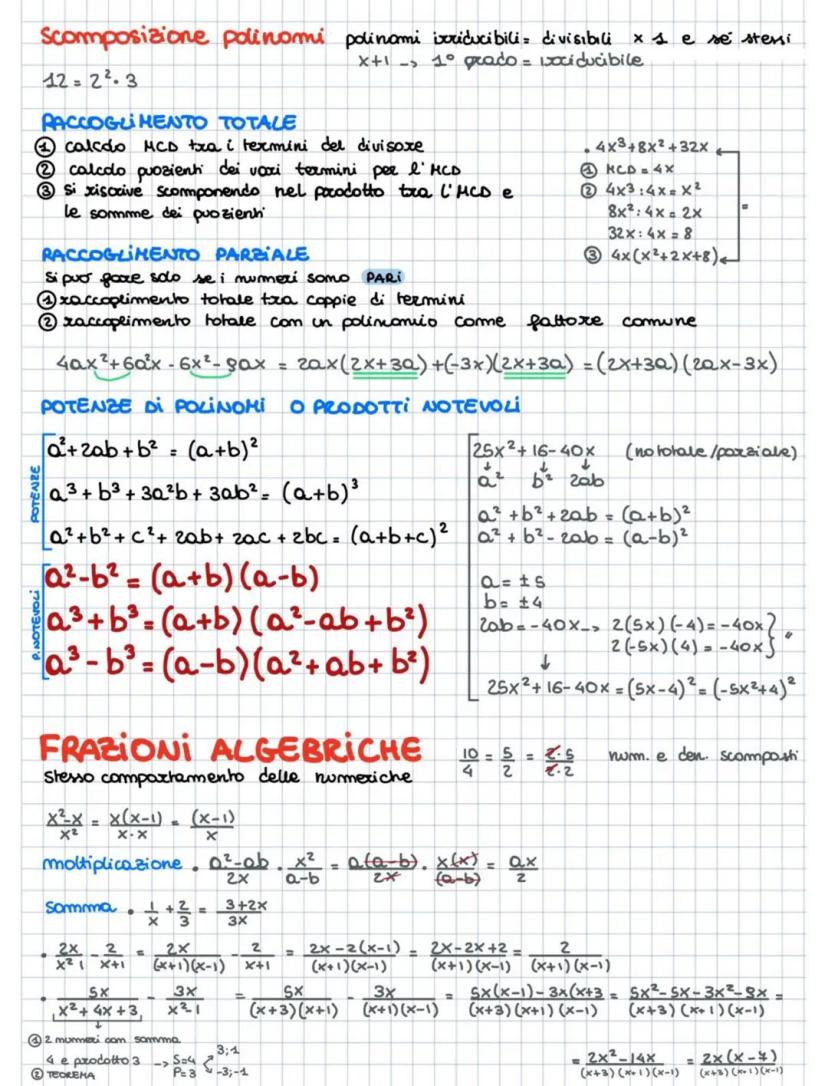 Scomposizione polinomi polinomi irriducibili = divisibili x 1 e sé stessi
x+1 -> 1° grado = irriducibile
12 = 2² · 3
RACCOGLIMENTO TOTALE
① calcolo MCD tra i termini del divisore
② calcolo quozienti dei vari termini per l'MCD
③ si riscrive scomponendo nel prodotto tra l'MCD e
le somme dei quozienti
• 4x³+8x²+32x
① MCD = 4x
② 4x³:4x = x²
8x²:4x = 2x
32x:4x = 8
=
③ 4x(x²+2x+8)
RACCOGLIMENTO PARZIALE
si può fare solo se i numeri sono PARI
① raccoglimento totale tra coppie di termini
② raccoglimento totale con un polinomio come fattore comune
4ax²+6a²x - 6x²- 9ax = 2ax(2x+3a)+(-3x)(2x+3a) = (2x+3a)(2ax-3x)
POTENZE Di POLINOMI O PRODOTTI NOTEVOLI
POTENZE
a²+2ab+b² = (a+b)²
a³+b³+3a²b+3ab² = (a+b)³
a²+b²+c²+2ab+2ac+2bc = (a+b+c)²
P. NOTEVOLI
a²-b² = (a+b)(a-b)
a³+b³ = (a+b)(a²-ab+b²)
a³-b³ = (a-b)(a²+ab+b²)
25x²+16-40x (no totale/parziale)
a² b² 2ab
a²+b²+2ab = (a+b)²
a²+b²-2ab = (a-b)²
a = ±5
b = ±4
2ab = -40x -> 2(5x)(-4) = -40x
2(-5x)(4) = -40x
25x²+16-40x = (5x-4)² = (-5x²+4)²
FRAZIONI ALGEBRICHE 10/4 = 5/2 = 2·5/2·2 num. e den. scomposti
stesso comportamento delle numeriche
x²-x/x² = x(x-1)/x·x = (x-1)/x
moltiplicazione • a²-ab/2x · x²/a-b = a(a-b)/2x · x(x)/(a-b) = ax/2
somma • 1/x + 2/3 = 3+2x/3x
• 2x/x²1 - 2/x+1 = 2x/(x+1)(x-1) - 2/x+1 = 2x-2(x-1)/(x+1)(x-1) = 2x-2x+2/(x+1)(x-1) = 2/(x+1)(x-1)
• 5x/x²+4x+3 - 3x/x²-1 = 5x/(x+3)(x+1) - 3x/(x+1)(x-1) = 5x(x-1)-3x(x+3/(x+3)(x+1)(x-1) = 5x²-5x-3x²-9x/(x+3)(x+1)(x-1) =
① 2 numeri con somma
4 e prodotto 3 -> S=4 P=3 3;1 -3;-1
② TEOREMA
= 2x²-14x/(x+3)(x+1)(x-1) = 2x(x-7)/(x+3)(x+1)(x-1)